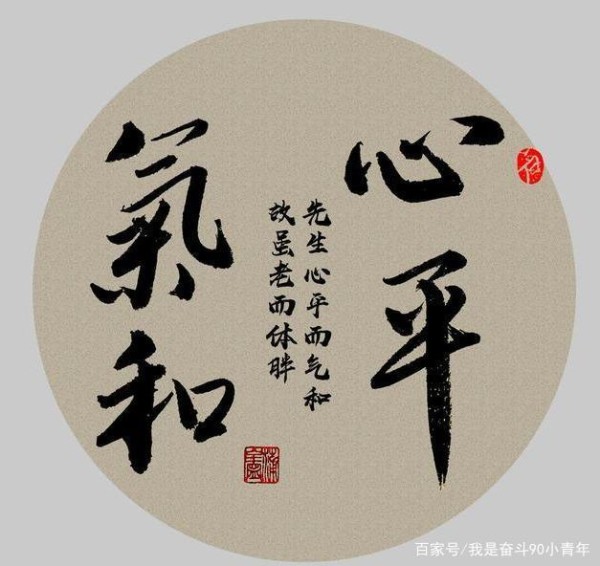 心平
氣和
先生心平而气和
故虽老而体胖
百家号/我是奋斗90小青年